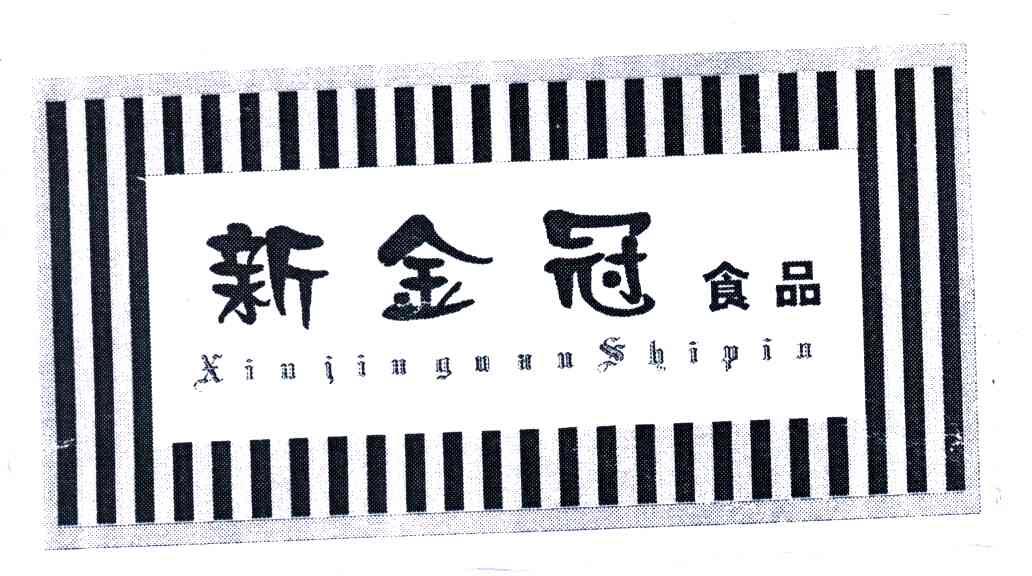 新金冠食品
XinjinguanShipin